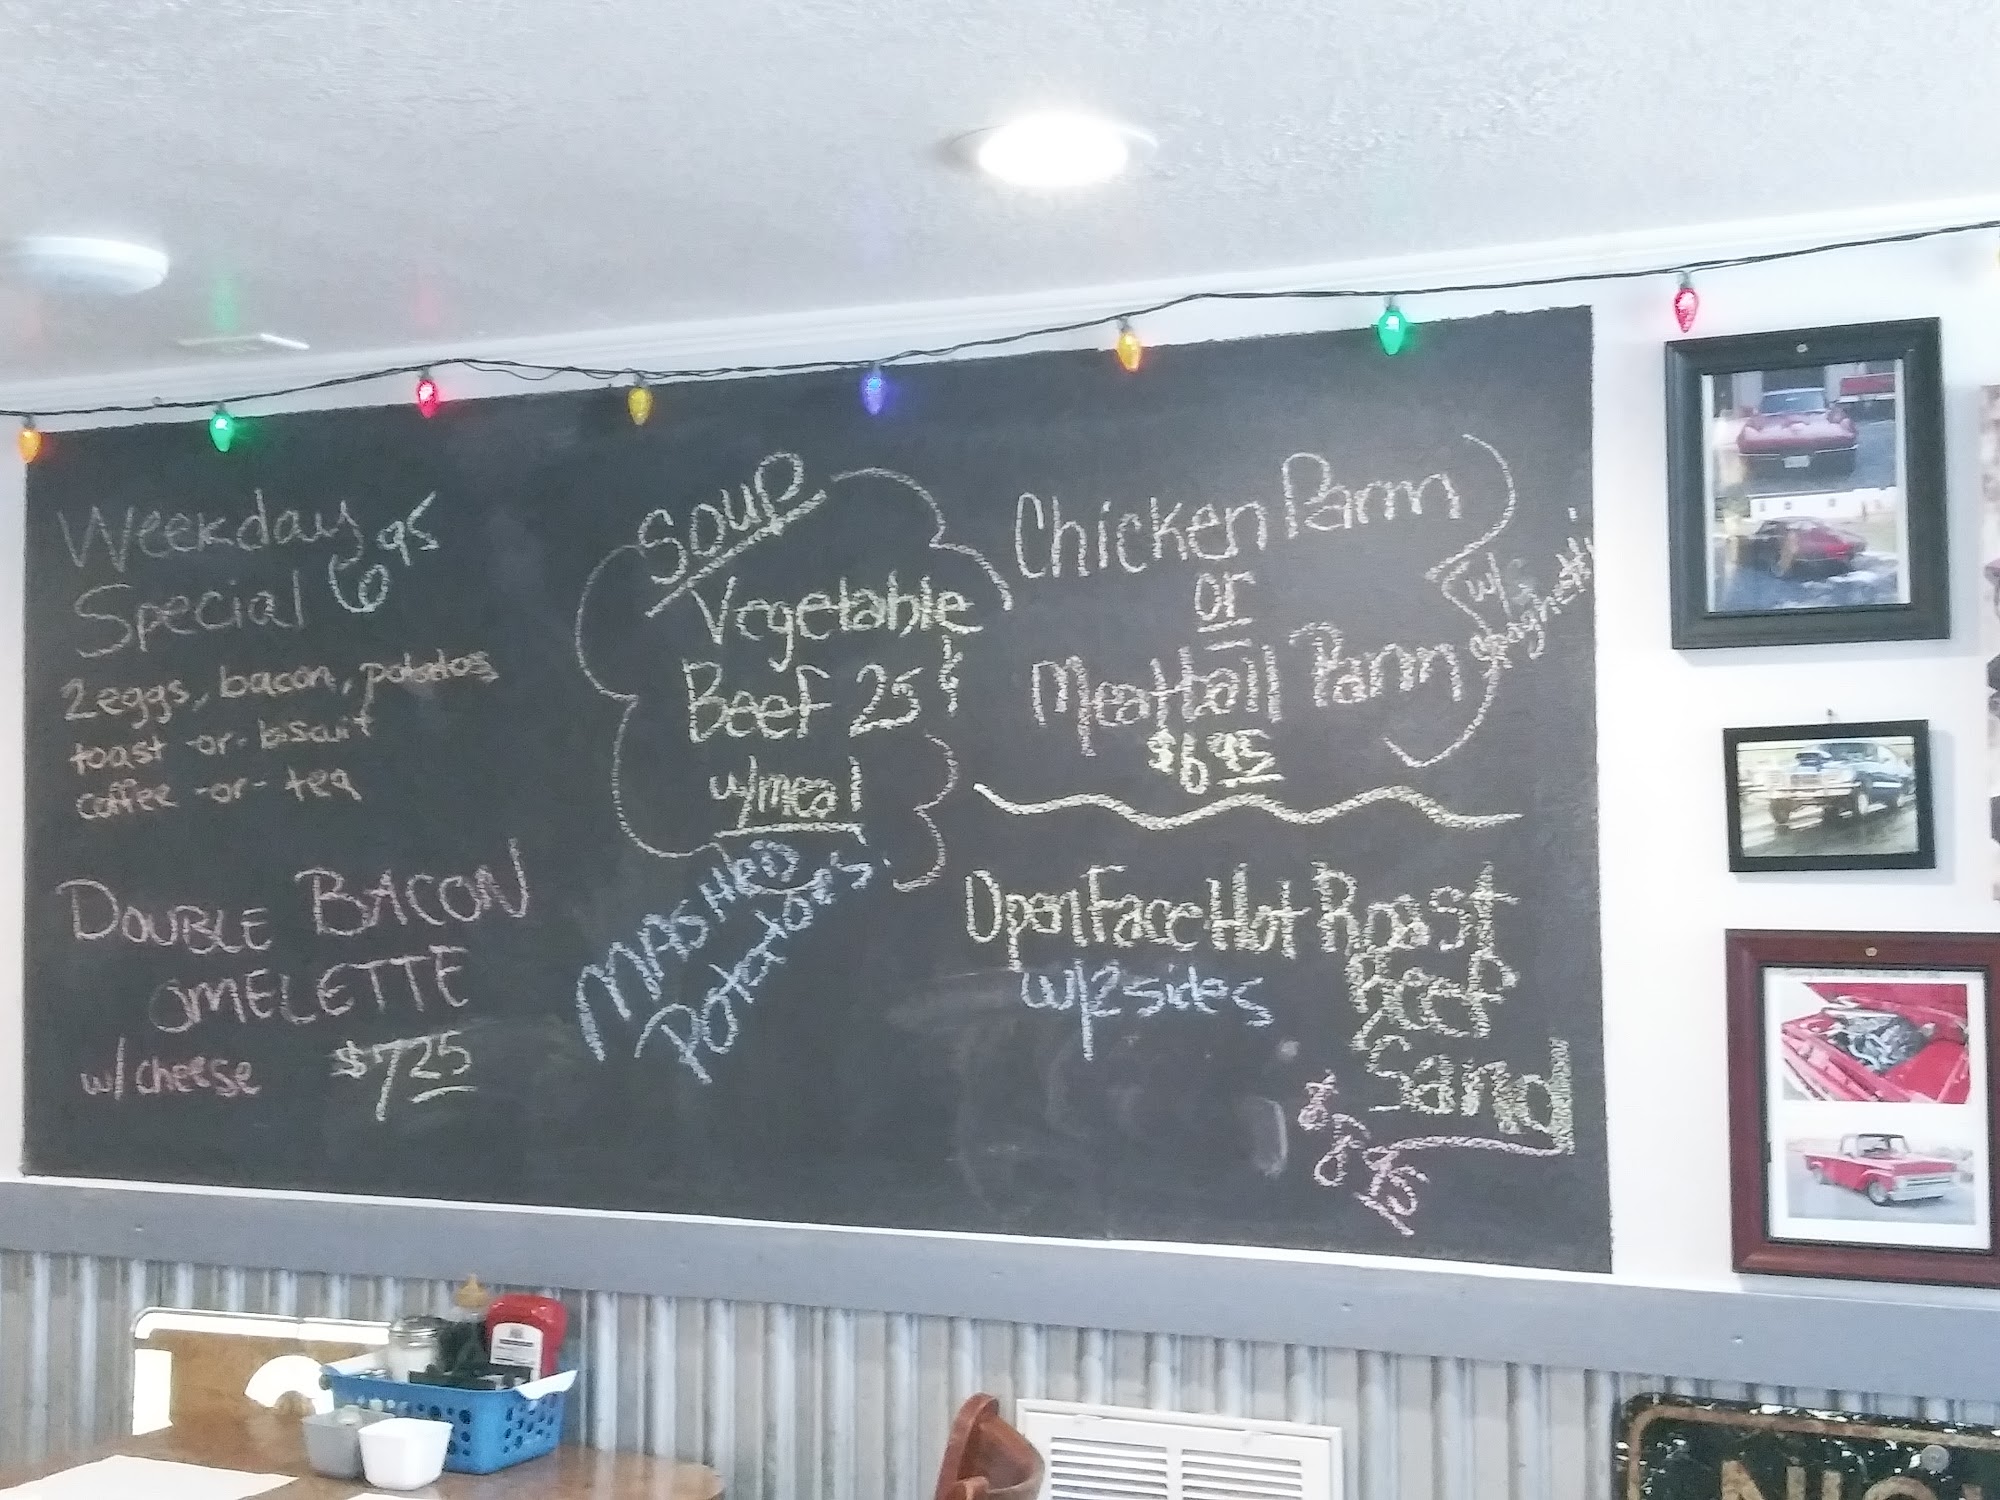 Weekday
Special 6 95
2 eggs, bacon, potatoes
toast -or- biscuit
coffee -or- tea
DOUBLE BACON
OMELETTE
w/cheese $7 25
Soup
Vegetable
Beef 25¢
w/meal
MASHED
Potatoes
Chicken Parm
or
Meatball Parm
w/spaghetti
$6 95
Open Face Hot Roast
Beef
Sand
w/2 sides